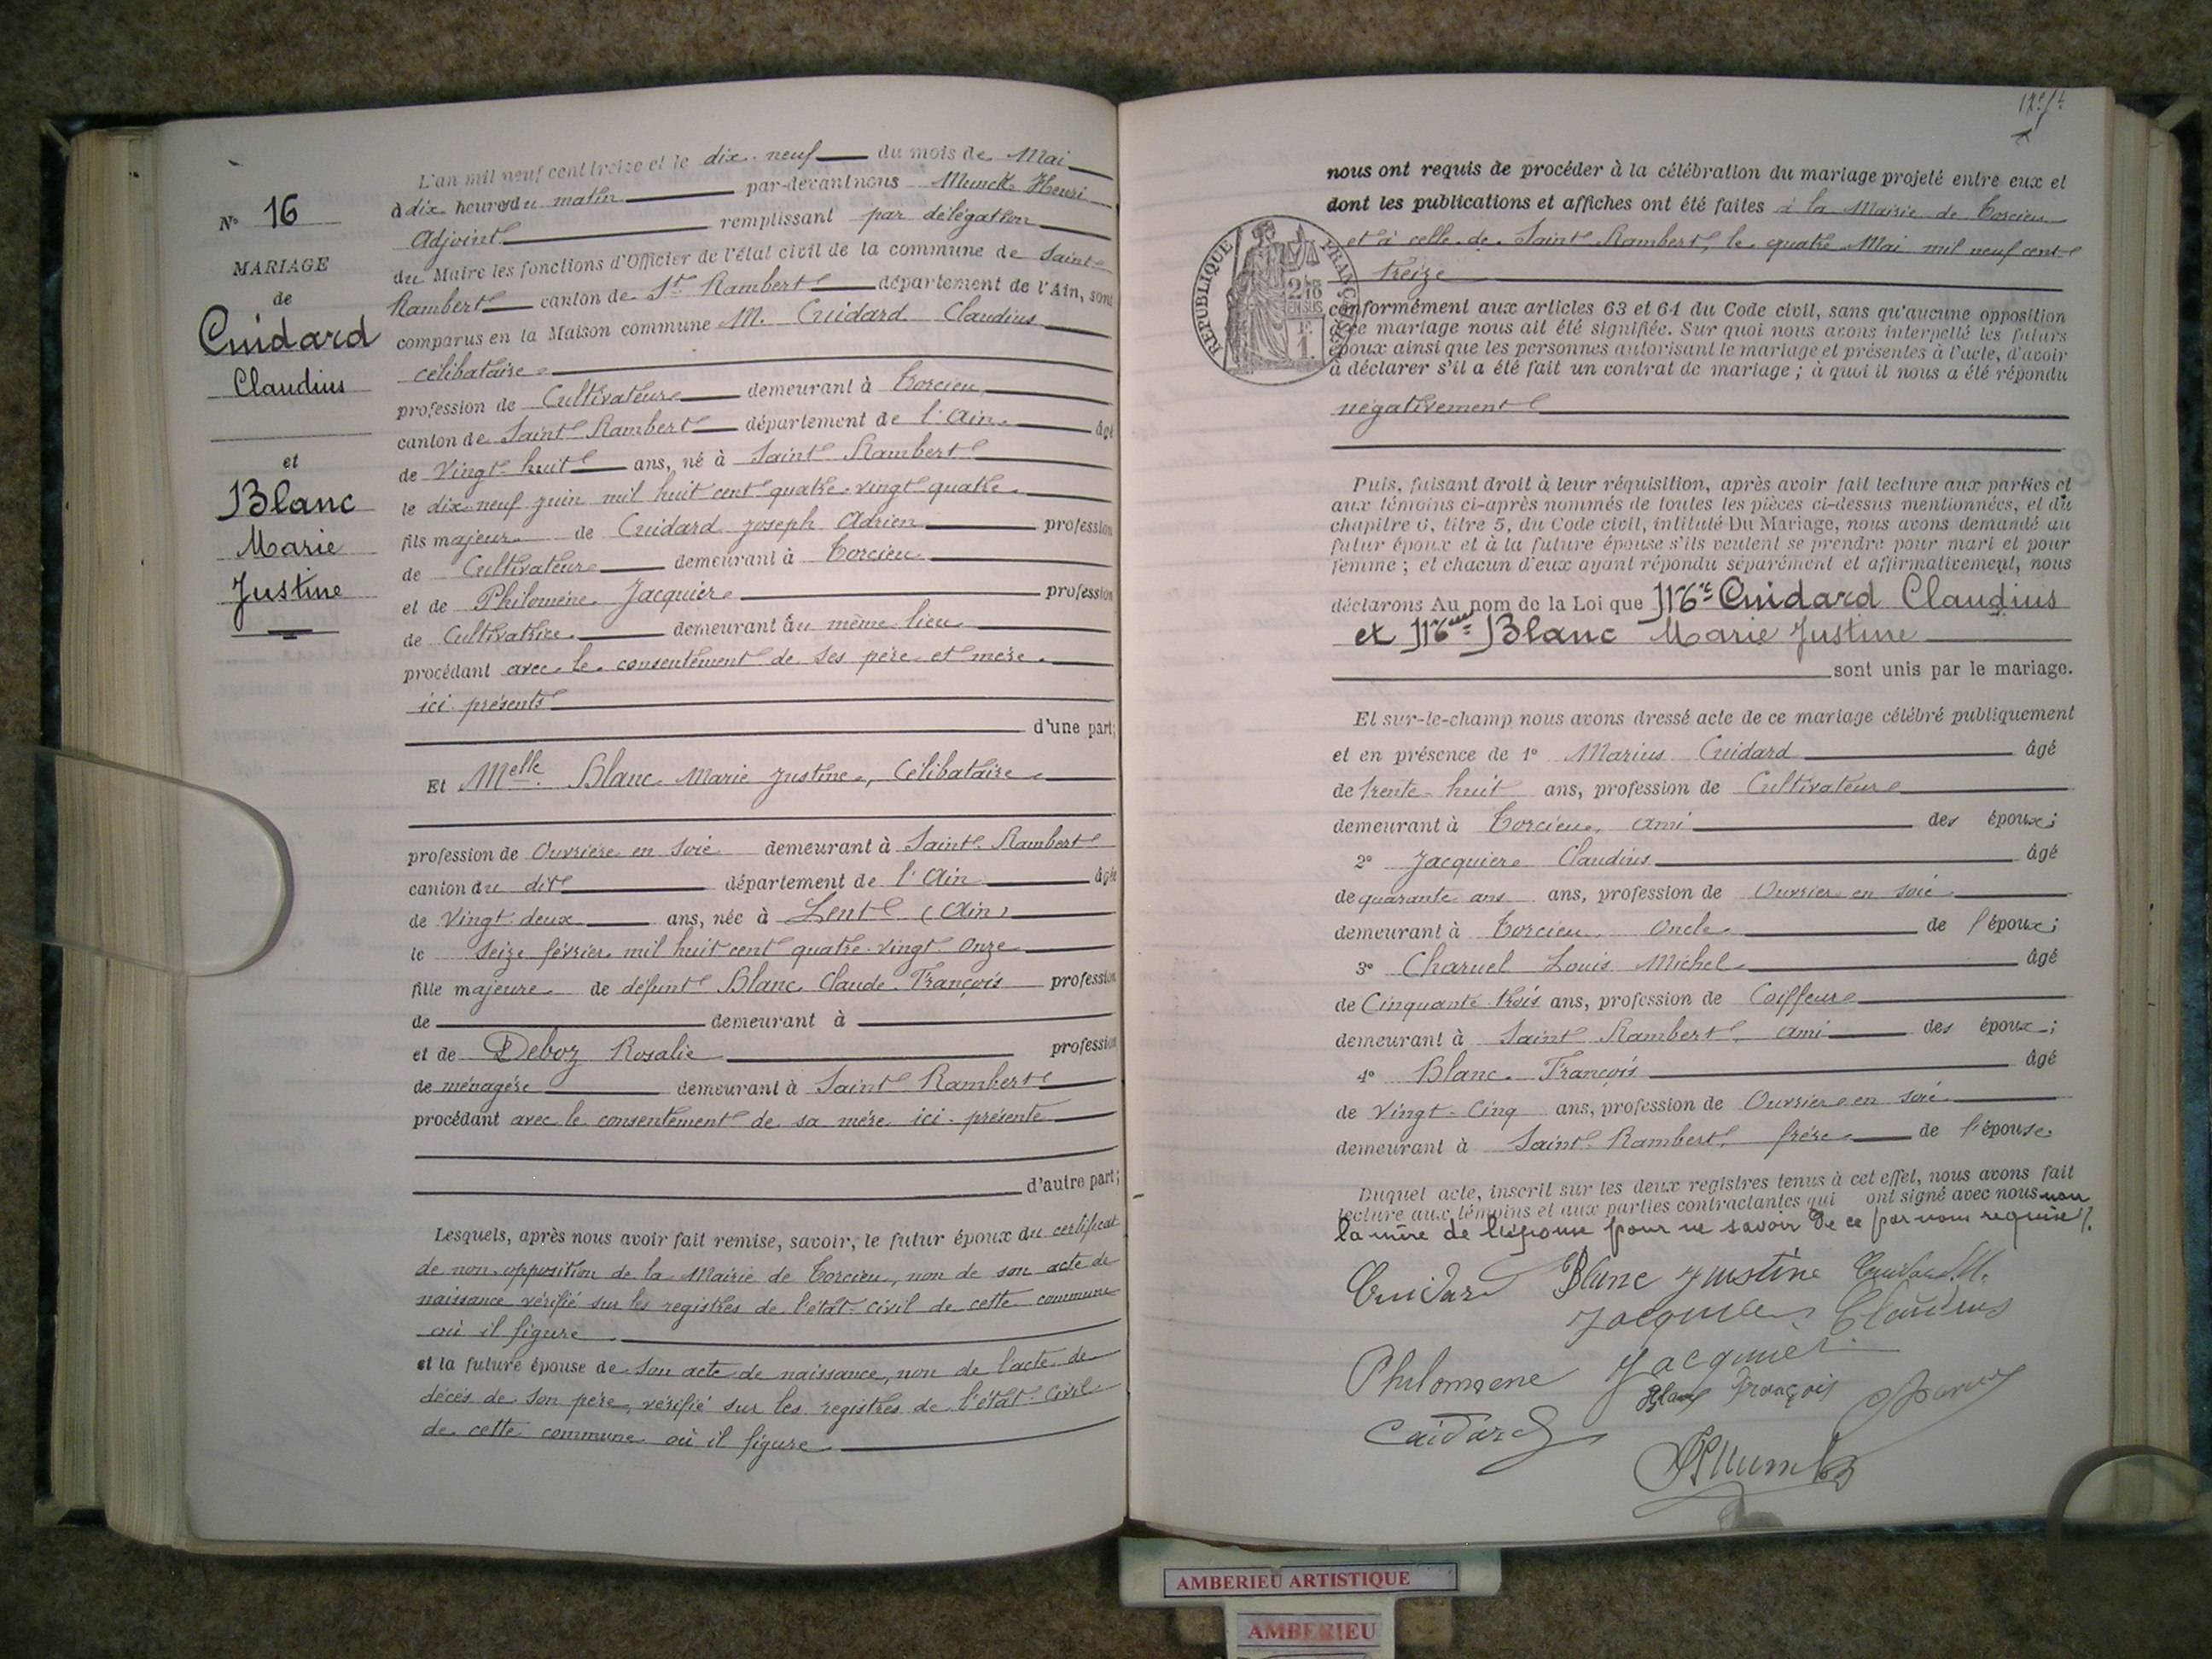 N° 16
MARIAGE
de
Cuidard
Claudius
et
Blanc
Marie
Justine
L'an mil neuf cent treize et le dix-neuf du mois de Mai
à dix heures du matin par-devant nous Munck Henri
Adjoint remplissant par délégation
du Maire les fonctions d'Officier de l'état civil de la commune de Saint-
Rambert canton de St Rambert département de l'Ain, sont
comparus en la Maison commune M. Cuidard Claudius
célibataire
profession de Cultivateur demeurant à Torcieu
canton de Saint Rambert département de l'Ain âgé
de Vingt-huit ans, né à Saint Rambert
le dix-neuf juin mil huit cent quatre-vingt-quatre
fils majeur de Cuidard Joseph Adrien profession
de Cultivateur demeurant à Torcieu
et de Philomène Jacquier profession
de Cultivatrice demeurant au même lieu
procédant avec le consentement de ses père et mère
ici présents
d'une part;
Et Melle Blanc Marie Justine, Célibataire
profession de Ouvrière en soie demeurant à Saint-Rambert
canton du dit département de l'Ain âgée
de Vingt-deux ans, née à Lent (Ain)
le seize février mil huit cent quatre-vingt-onze
fille majeure de défunt Blanc Claude François profession
de demeurant à
et de Deboz Rosalie profession
de ménagère demeurant à Saint Rambert
procédant avec le consentement de sa mère ici présente
d'autre part;
Lesquels, après nous avoir fait remise, savoir; le futur époux du certificat
de non-opposition de la Mairie de Torcieu, non de son acte de
naissance vérifié sur les registres de l'état-civil de cette commune
où il figure
et la future épouse de son acte de naissance, non de l'acte de
décès de son père, vérifié sur les registres de l'état-Civil
de cette commune où il figure
nous ont requis de procéder à la célébration du mariage projeté entre eux et
dont les publications et affiches ont été faites à la Mairie de Torcieu
et à celle de Saint Rambert, le quatre Mai mil neuf cent
treize
RÉPUBLIQUE FRANÇAISE
2/10
EN SUS
1 F.
conformément aux articles 63 et 64 du Code civil, sans qu'aucune opposition
à ce mariage nous ait été signifiée. Sur quoi nous avons interpellé les futurs
époux ainsi que les personnes autorisant le mariage et présentes à l'acte, d'avoir
à déclarer s'il a été fait un contrat de mariage ; à quoi il nous a été répondu
négativement
Puis, faisant droit à leur réquisition, après avoir fait lecture aux parties et
aux témoins ci-après nommés de toutes les pièces ci-dessus mentionnées, et du
chapitre 6, titre 5, du Code civil, intitulé Du Mariage, nous avons demandé au
futur époux et à la future épouse s'ils veulent se prendre pour mari et pour
femme ; et chacun d'eux ayant répondu séparément et affirmativement, nous
déclarons Au nom de la Loi que Mr Cuidard Claudius
et Melle Blanc Marie Justine
sont unis par le mariage.
Et sur-le-champ nous avons dressé acte de ce mariage célébré publiquement
et en présence de 1° Marius Cuidard âgé
de trente-huit ans, profession de Cultivateur
demeurant à Torcieu, ami des époux;
2° Jacquier Claudius âgé
de quarante ans ans, profession de Ouvrier en soie
demeurant à Torcieu, Oncle de l'époux;
3° Charvel Louis Michel âgé
de Cinquante-trois ans, profession de Coiffeur
demeurant à Saint Rambert, ami des époux;
4° Blanc François âgé
de Vingt-Cinq ans, profession de Ouvrier en soie
demeurant à Saint-Rambert, frère de l'épouse
Duquel acte, inscrit sur les deux registres tenus à cet effet, nous avons fait
lecture aux témoins et aux parties contractantes qui ont signé avec nous non
la mère de l'épouse pour ne savoir de ce par nous requise
Cuidard Blanc Justine Cuidard M.
Jacquier Claudius
Philomene Jacquier
Blanc François
Cuidard
AMBERIEU ARTISTIQUE
AMBERIEU